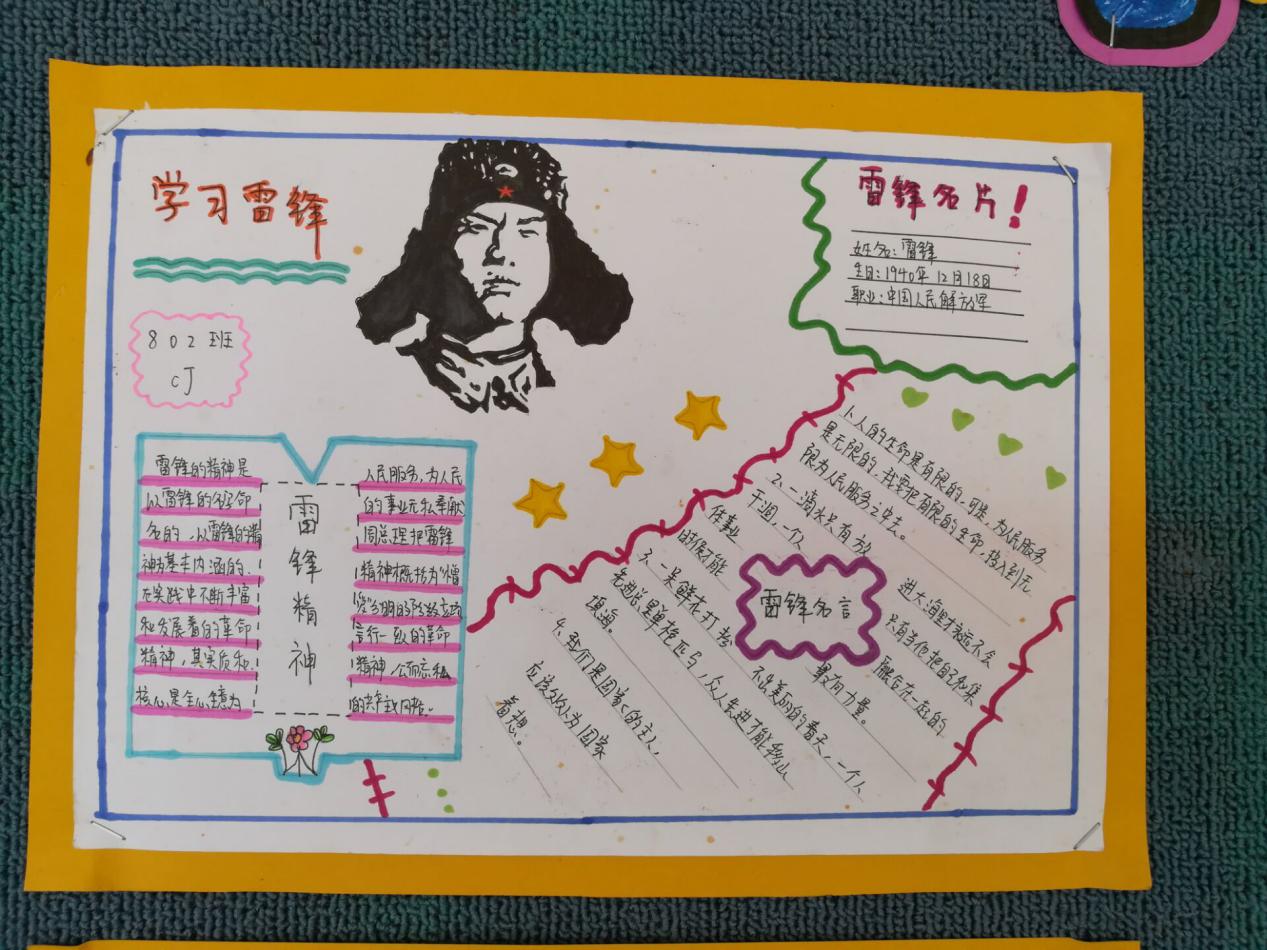 学习雷锋
802班
CJ
雷锋名片！
姓名：雷锋
生日：1940年12月18日
职业：中国人民解放军
雷锋精神
雷锋的精神是
以雷锋的名字命
名的、以雷锋的精
神为基本内涵的、
在实践中不断丰富
和发展着的革命
精神，其实质和
核心是全心全意为
人民服务，为人民
的事业无私奉献
周总理把雷锋
精神概括为“憎
爱分明的阶级立场
言行一致的革命
精神，公而忘私
的共产主义风格.
雷锋名言
1、人的生命是有限的，可是，为人民服务
是无限的，我要把有限的生命，投入到无
限为人民服务之中去。
2、一滴水只有放 进大海里才永远不会
干涸，一个人 只有当他把自己和集
体事业 融合在一起的
时候才能 最有力量。
3、一朵鲜花打扮 不出美丽的春天，一个人
先进总是单枪匹马，众人先进才能移山
填海。
4、我们是国家的主人，
应该处处为国家
着想。